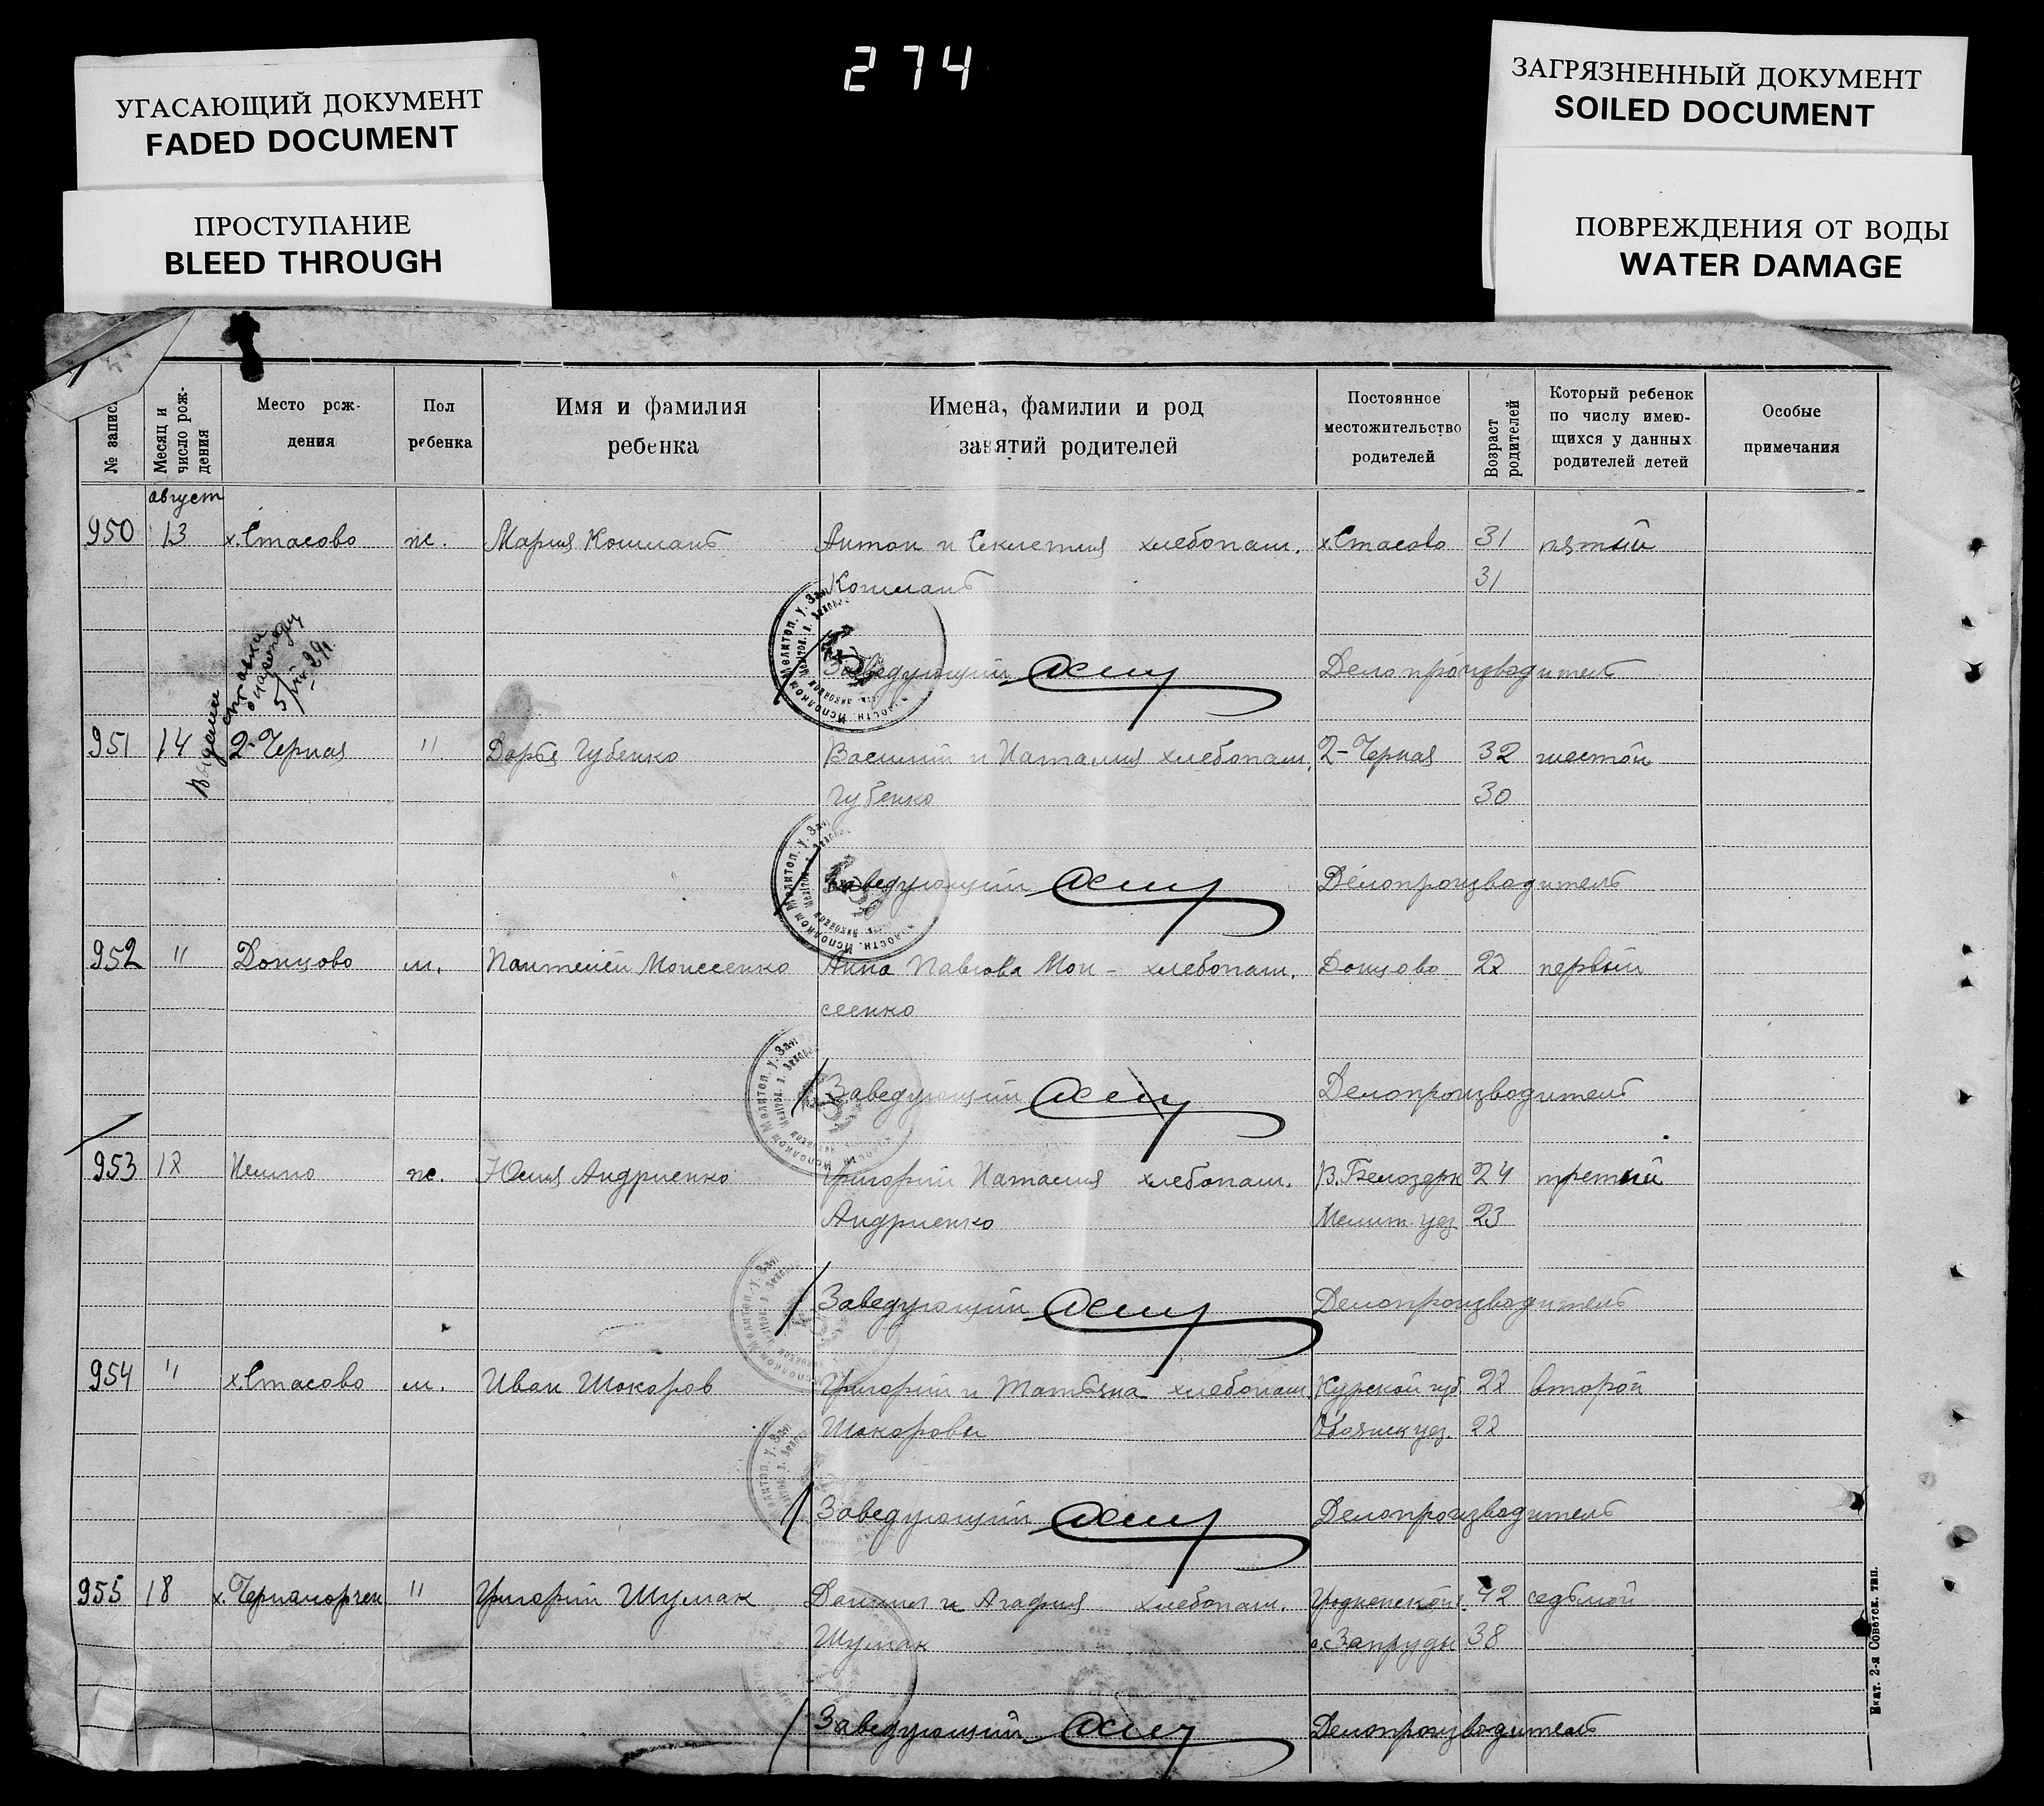 274
УГАСАЮЩИЙ ДОКУМЕНТ
FADED DOCUMENT
ПРОСТУПАНИЕ
BLEED THROUGH
ЗАГРЯЗНЕННЫЙ ДОКУМЕНТ
SOILED DOCUMENT
ПОВРЕЖДЕНИЯ ОТ ВОДЫ
WATER DAMAGE
№ запис
Месяц и число рож-дения
Место рож-дения
Пол ребенка
Имя и фамилия ребенка
Имена, фамилии и род занятий родителей
Постоянное местожительство родителей
Возраст родителей
Который ребенок по числу имею-щихся у данных родителей детей
Особые примечания
август
950 13 х.Стасово ж. Мария Кошман Антон и Секлетия хлебопаш. х.Стасово 31 пятый
Кошман 31
Заведующий Делопроизводитель
951 14 2-Черная " Дарья Губенко Василий и Наталия хлебопаш. 2-Черная 32 шестой
Губенко 30
Заведующий Делопроизводитель
952 " Донцово м. Пантелей Моисеенко Анна Павлова Мои- хлебопаш. Донцово 22 первый
сеенко
Заведующий Делопроизводитель
953 ж. Юлия Андриенко Григорий Наталия хлебопаш. В.Белозерк 24 третий
Андриенко Мелит. уез. 23
Заведующий Делопроизводитель
954 " х.Стасово м. Иван Шокоров Григорий и Татьяна хлебопаш. Курской губ. 22 второй
Шокоровы уез. 22
Заведующий Делопроизводитель
955 18 " Григорий Шумак Даниил и Агафия хлебопаш. 42 седьмой
Шумак 38
Заведующий Делопроизводитель
Екат. 2-я Советск. тип.